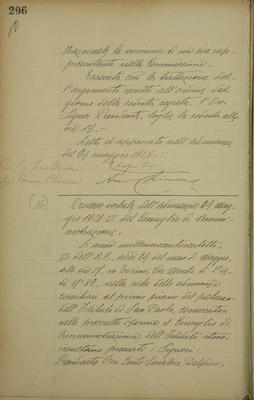 296
nazionale la nomina di un suo rap-
presentante nella Commissione.
Esaurita così la trattazione del-
l'argomento iscritto all'ordine del
giorno della seduta segreta, l'On.
Signor Presidente, toglie la seduta alle
ore 19.-
Letto ed approvato nell'adunanza
del 29 maggio 1928.-
(16)
Processo verbale dell'adunanza 29 mag-
gio 1928-VI del Consiglio di ammini-
strazione.
L'anno millenovecentoventotto,
VI dell'E.F., addì 29 del mese di maggio,
alle ore 17, in Torino, Via Monte di Pie-
tà nella sede dell'adunanze
consiliari al primo piano del palazzo
dell'Istituto di San Paolo, convocatosi
nelle prescritte forme il Consiglio di
Amministrazione dell'Istituto stesso
presenti i Signori:
Presidente On. Conte Senatore Delfino,